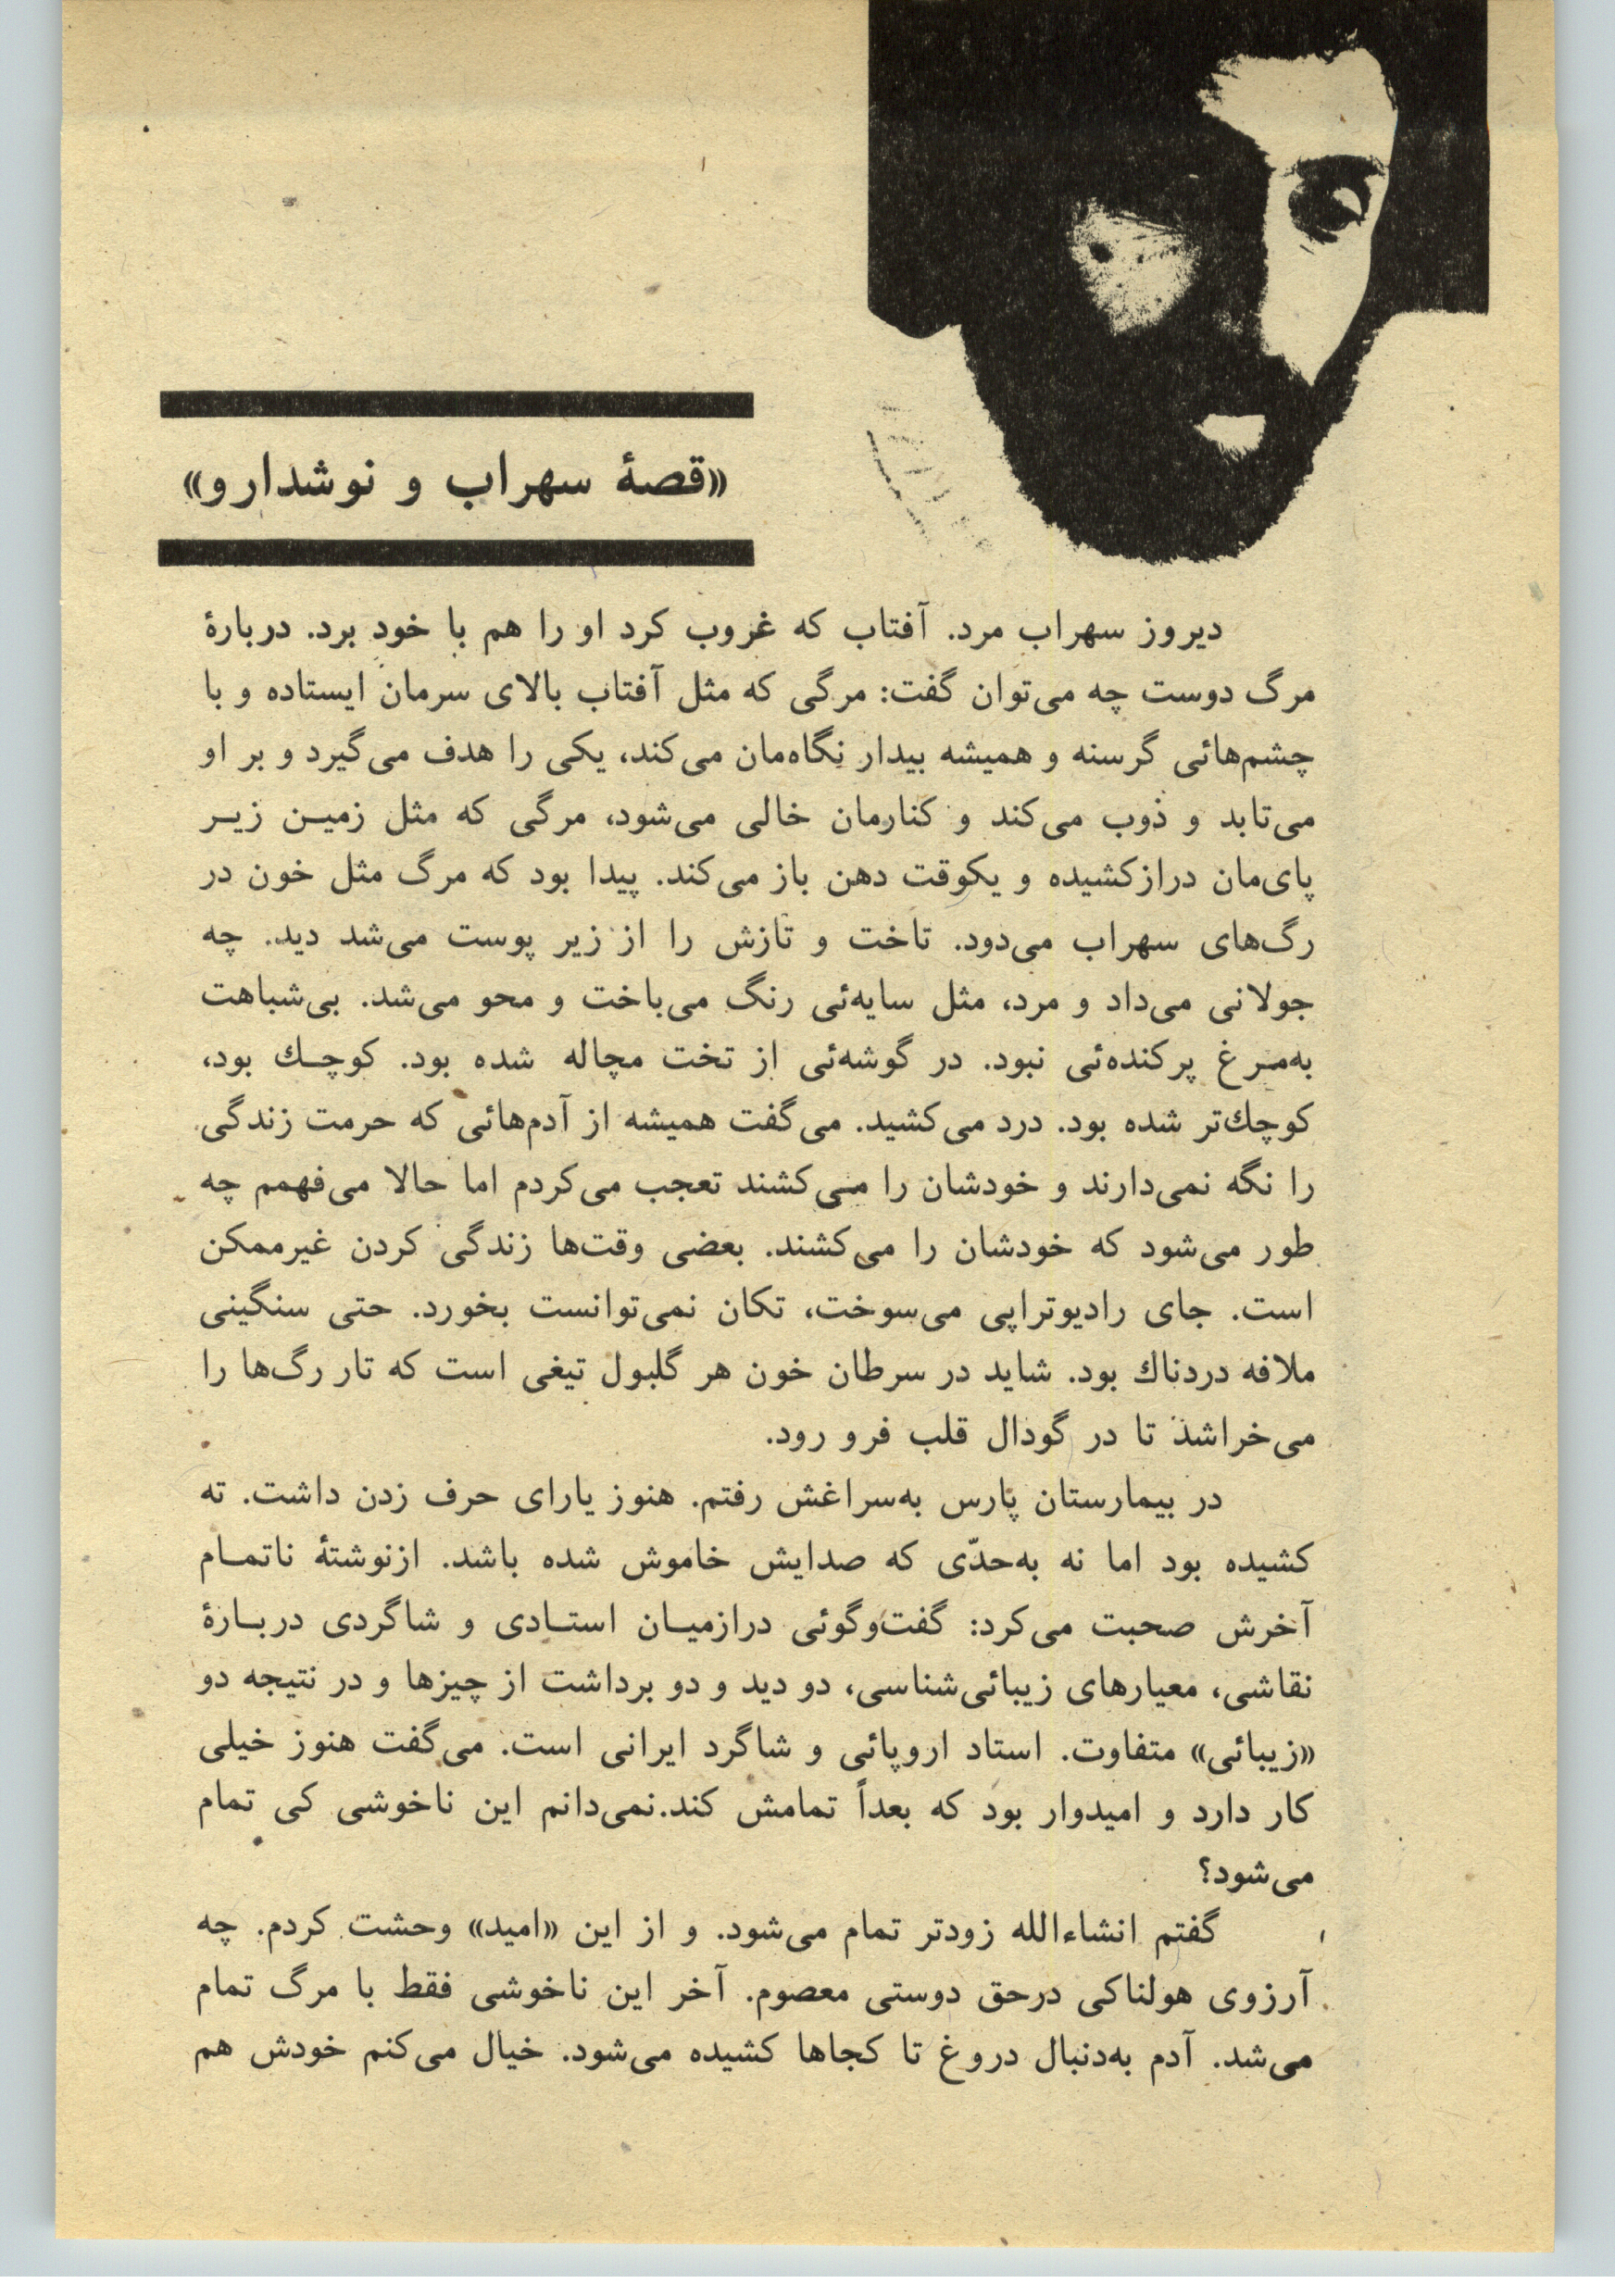 «قصهٔ سهراب و نوشدارو»
دیروز سهراب مرد. آفتاب که غروب کرد او را هم با خود برد. دربارهٔ
مرگ دوست چه می‌توان گفت: مرگی که مثل آفتاب بالای سرمان ایستاده و با
چشم‌هائی گرسنه و همیشه بیدار نگاه‌مان می‌کند، یکی را هدف می‌گیرد و بر او
می‌تابد و ذوب می‌کند و کنارمان خالی می‌شود، مرگی که مثل زمین زیر
پای‌مان درازکشیده و یکوقت دهن باز می‌کند. پیدا بود که مرگ مثل خون در
رگ‌های سهراب می‌دود. تاخت و تازش را از زیر پوست می‌شد دید. چه
جولانی می‌داد و مرد، مثل سایه‌ئی رنگ می‌باخت و محو می‌شد. بی‌شباهت
به‌مرغ پرکنده‌ئی نبود. در گوشه‌ئی از تخت مچاله شده بود. کوچك بود،
کوچك‌تر شده بود. درد می‌کشید. می‌گفت همیشه از آدم‌هائی که حرمت زندگی
را نگه نمی‌دارند و خودشان را می‌کشند تعجب می‌کردم اما حالا می‌فهمم چه
طور می‌شود که خودشان را می‌کشند. بعضی وقت‌ها زندگی کردن غیرممکن
است. جای رادیوتراپی می‌سوخت، تکان نمی‌توانست بخورد. حتی سنگینی
ملافه دردناك بود. شاید در سرطان خون هر گلبول تیغی است که تار رگ‌ها را
می‌خراشد تا در گودال قلب فرو رود.
در بیمارستان پارس به‌سراغش رفتم. هنوز یارای حرف زدن داشت. ته
کشیده بود اما نه به‌حدّی که صدایش خاموش شده باشد. ازنوشتهٔ ناتمام
آخرش صحبت می‌کرد: گفت‌وگوئی درازمیان استادی و شاگردی دربارهٔ
نقاشی، معیارهای زیبائی‌شناسی، دو دید و دو برداشت از چیزها و در نتیجه دو
«زیبائی» متفاوت. استاد اروپائی و شاگرد ایرانی است. می‌گفت هنوز خیلی
کار دارد و امیدوار بود که بعداً تمامش کند.نمی‌دانم این ناخوشی کی تمام
می‌شود؟
گفتم انشاءالله زودتر تمام می‌شود. و از این «امید» وحشت کردم. چه
آرزوی هولناکی درحق دوستی معصوم. آخر این ناخوشی فقط با مرگ تمام
می‌شد. آدم به‌دنبال دروغ تا کجاها کشیده می‌شود. خیال می‌کنم خودش هم